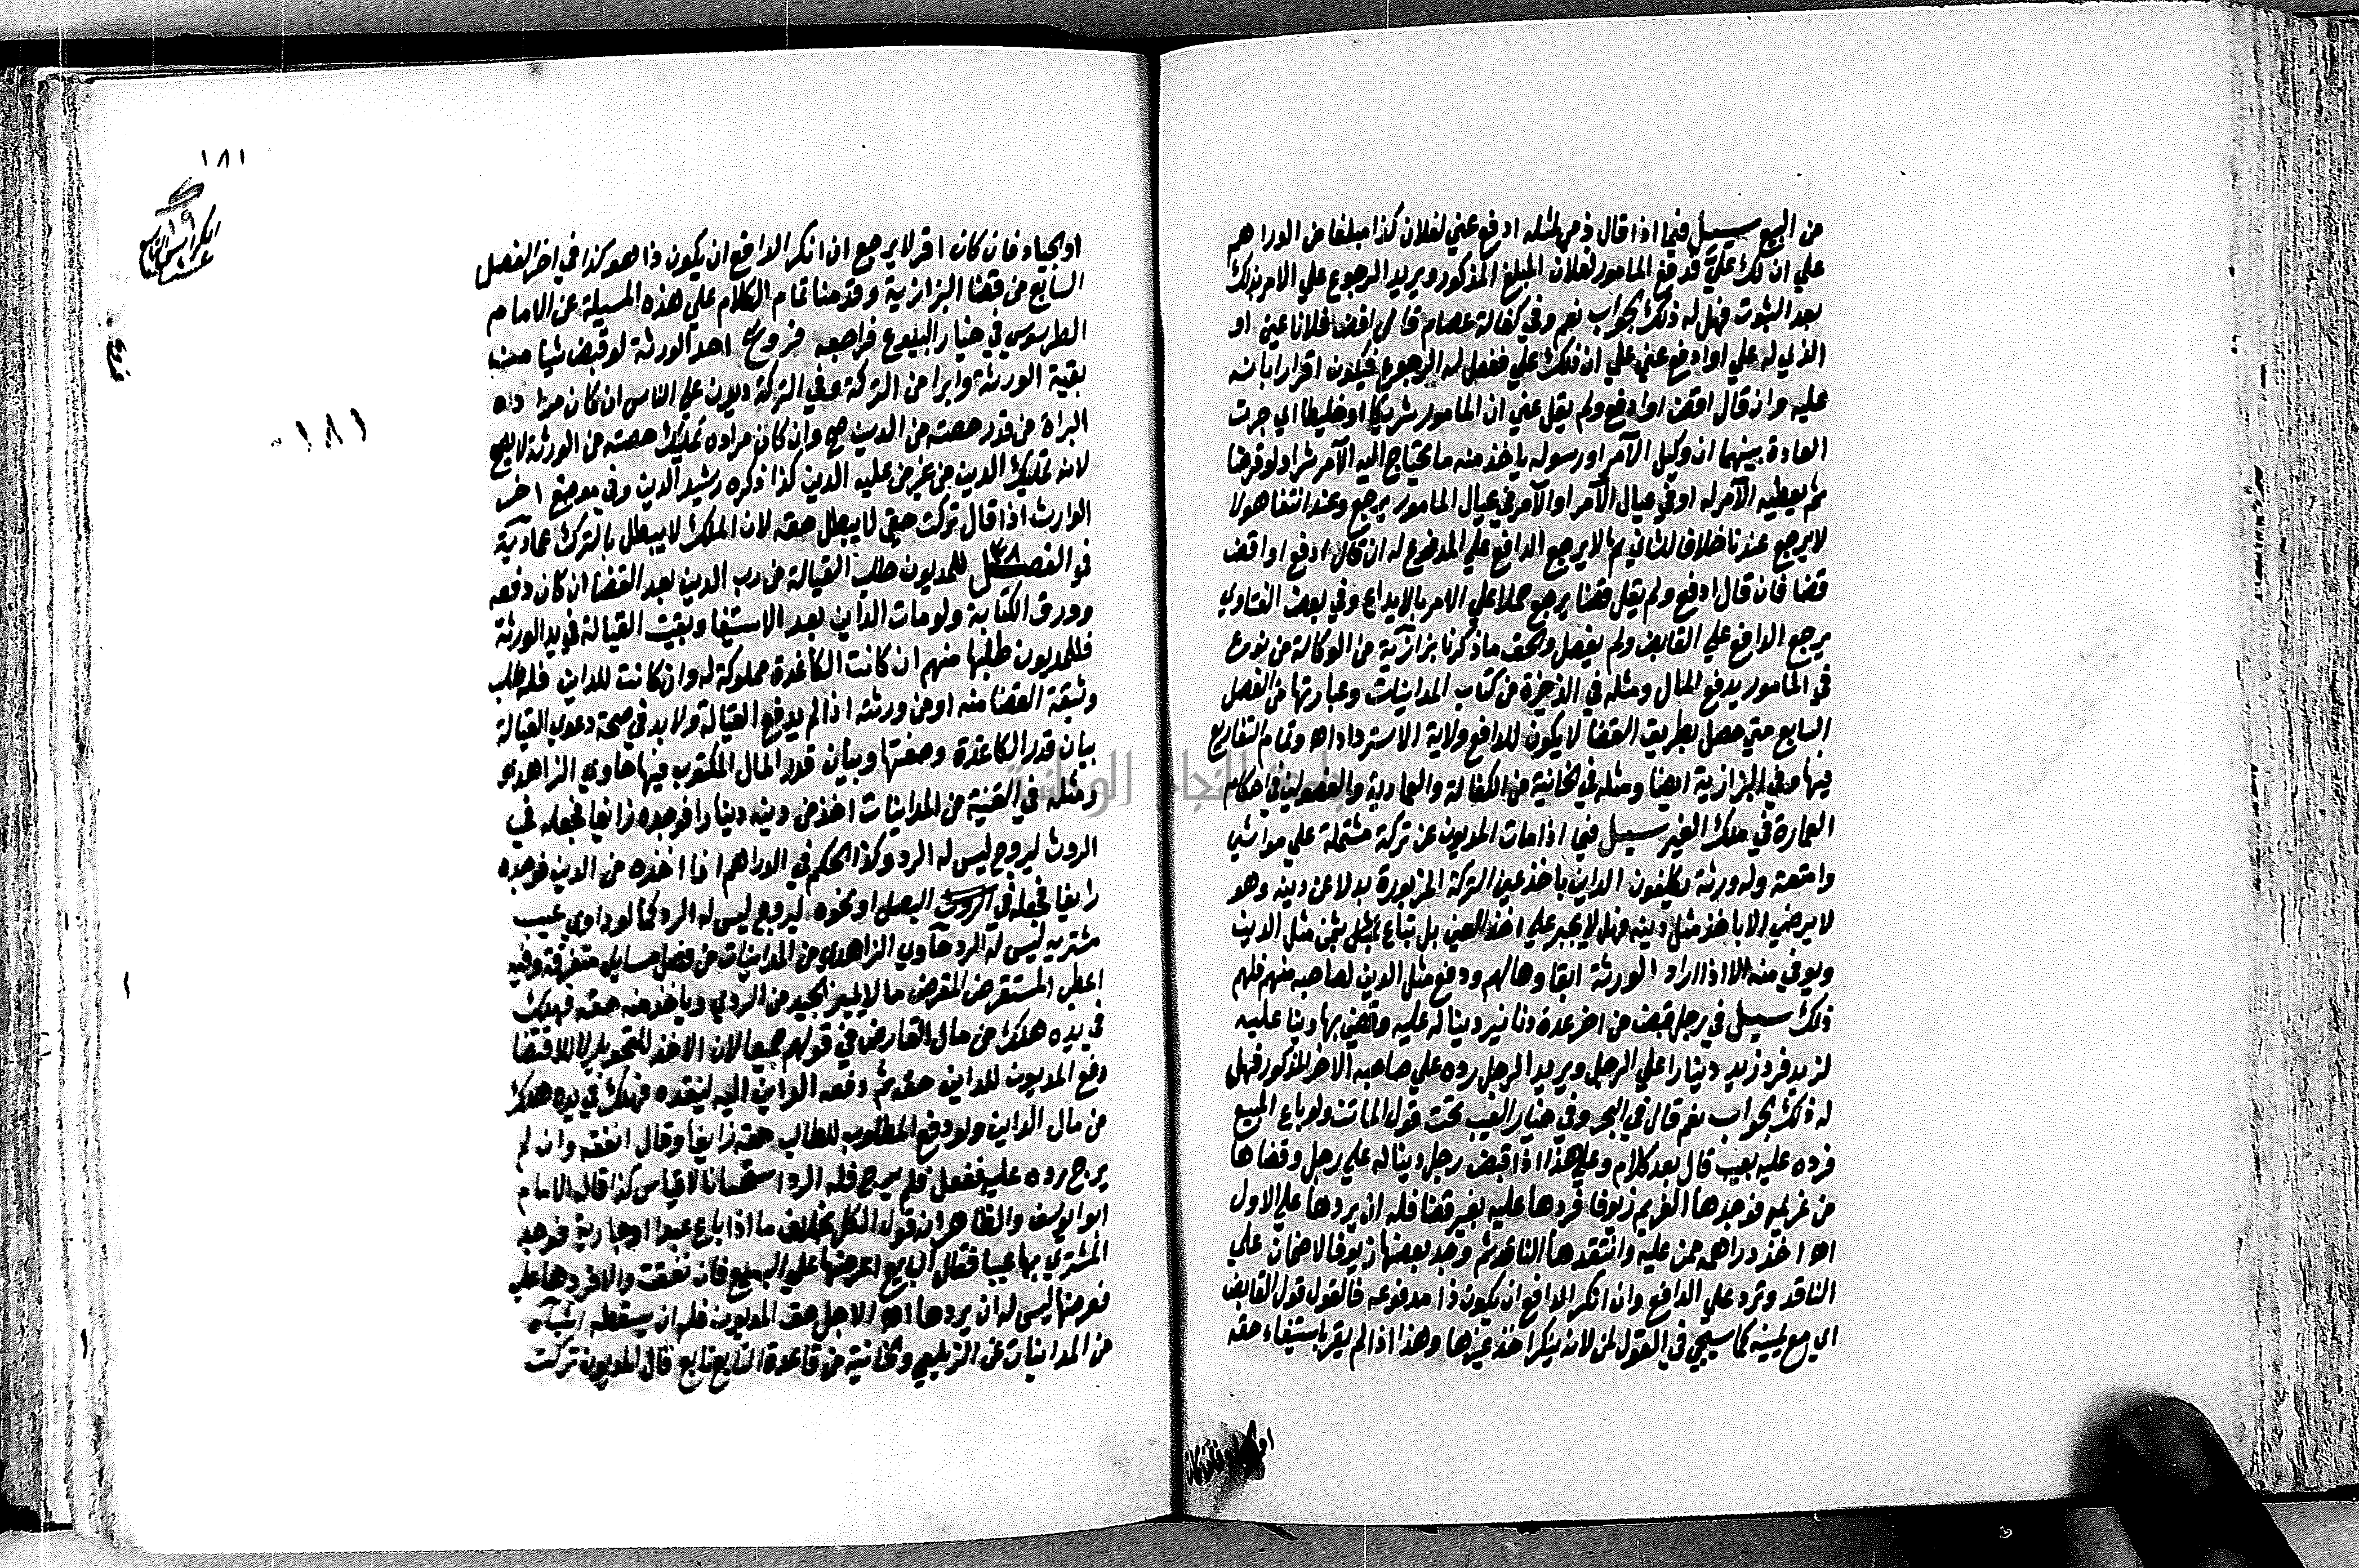 من البيع سيل فيما اذا قال ذمي لمثله ادفع عني لفلان كذا مبلغا من الدراهم
علي ان لك عليّ فدفع المامور لفلان المبلغ المذكور ويريد الرجوع علي الامر بذلك
بعد الثبوت فهل له ذلك الجواب نعم وفي كفالة عصام قال اقض فلانا عني او
الذي له علي او ادفع عني علي ان ذلك علي ففعل له الرجوع فيكون اقرارا بانه
عليه وان قال اقض او ادفع ولم يقل عني ان المامور شريكا او خليطا اي جرت
العادة بينهما ان وكيل الآمر او رسوله ياخذ منه ما يحتاج اليه الآمر شرا او قرضا
ثم يعطيه الآمر له او في عيال الآمر او الآمر في عيال المامور يرجع وعند انتفا هولا
لا يرجع عندنا خلافا للثاني كما لا يرجع الدافع علي المدفوع له ان قال ادفع او اقض
قضا فان قال ادفع ولم يقل قضا يرجع حملا علي الامر بالايداع وفي بعض الفتاوي
يرجع الدافع علي القابض ولم يفصل والحق ما ذكرنا بزازية من الوكالة من نوع
في المامور بدفع المال ومثله في الذخيرة من كتاب المداينات وعبارتها من الفصل
السابع متي حصل بطريق القضا لا يكون للدافع ولاية الاسترداد اه وتمام التفاريع
فيها وفي البزازية ايضا ومثله في الخانية من الكفالة والعمادية والفصولين في احكام
العمارة في ملك الغير سيل فيما اذا مات المديون عن تركة مشتملة علي مواشي
وامتعة وله ورثة يكلفون الداين باخذ عين التركة المزبورة بدلا عن دينه وهو
لا يرضي الا باخذ مثل دينه فهل لا يجبر علي اخذ العين بل تباع بمثل ثمن مثل الدين
ويوفي منه الا اذا اراد الورثة ابقاوها لهم ودفع مثل الدين لصاحبه منهم فلهم
ذلك سيل في رجل قبض من اخر عدة دنانير دينا له عليه وقضي بها دينا عليه
لزيد فرد زيد دينارا علي الرجل ويريد الرجل رده علي صاحبه الاخر المذكور فهل
له ذلك الجواب نعم قال في البحر وفي خيار العيب تحت قول الماتن ولو باع المبيع
فرده عليه بعيب قال بعد كلام وعلي هذا اذا قبض رجل دينا له علي رجل وقضاها
من غريمه فوجدها الغريم زيوفا فردها عليه بغير قضا فله ان يردها علي الاول
اه اخذ دراهمه ممن عليه وانتقدها الناقد ثم وجد بعضها زيوفا لا ضمان علي
الناقد وترد علي الدافع وان انكر الدافع ان يكون ذا مدفوعه فالقول قول القابض
اي مع يمينه كما سيجي في القول لمن لانه ينكر اخذ غيرها وهذا اذا لم يقر باستيفاء حقه
١٨١
١٩
او الجياد فان كان اقر لا يرجع ان انكر الدافع ان يكون ذا هو كذا في اخر الفصل
السابع من قضا البزازية وقدمنا تمام الكلام علي هذه المسيلة عن الامام
الطرسوسي في خيار البلوغ فراجعه فروع احد الورثة لو قبض شيا من
بقية الورثة وابرا من التركة وفي التركة ديون علي الناس ان كان مراده
البراة من قدر حصته من الدين صح وان كان مراده تمليك حصته من الورثة لا يصح
لانه تمليك الدين من غير من عليه الدين كذا ذكره رشيد الدين وفي موضع اخر
الوارث اذا قال تركت حقي لا يبطل حقه لان الملك لا يبطل بالترك عمادية
في الفصل ٣٨ للمديون طلب القبالة من رب الدين بعد القضا ان كان دفعه
وورق الكتابة ولو مات الداين بعد الاستيفا وبقيت القبالة في يد الورثة
فللمديون طلبها منهم ان كانت الكاغدة مملوكة له وان كانت للداين فله طلب
وثيقة القضا منه او من ورثته اذا لم يدفع القبالة ولا بد في صحة دعوي القبالة
بيان قدر الكاغدة وصفتها وبيان قدر المال المكتوب فيها حاوي الزاهدي
ومثله في القنية من المداينات اخذ من دينه دينارا فوجده زايفا فجعله في
الروث ليروج ليس له الرد وكذا الحكم في الدراهم اذا اخذه من الدين فوجده
زايفا فجعله في البصل او نحوه ليروج ليس له الرد كما لو داوي عيب
مشتريه ليس له الرد حاوي الزاهدي من المداينات من فصل مسايل متفرقة وفيه
اعطي المستقرض المقرض ما لا يميز الجيد من الردي وياخذ منه حقه فهلك
في يده هلك من مال القارض في قولهم جميعا لان الاخذ للتحويل لا للاقتضا
دفع المديون للداين حقه ثم دفعه الداين اليه لينقده فهلك في يده هلك
من مال الداين ولو دفع المطلوب للطالب حقه زايفا وقال انفقه وان لم
يرج رده عليه ففعل فلم يرج فله الرد استحسانا لا قياس كذا قاله الامام
ابو يوسف والظاهر انه قول الكل بخلاف ما اذا باع عبدا او جارية فوجد
المشتري بها عيبا فقال البايع اعرضها علي البيع فان نفقت والا فردها علي
فعرضها ليس له ان يردها اه الاجل حق المديون فله ان يسقطه اشباه
من المداينات عن الزيلعي والخانية من قاعدة التابع تابع قال المديون تركت
١٨١